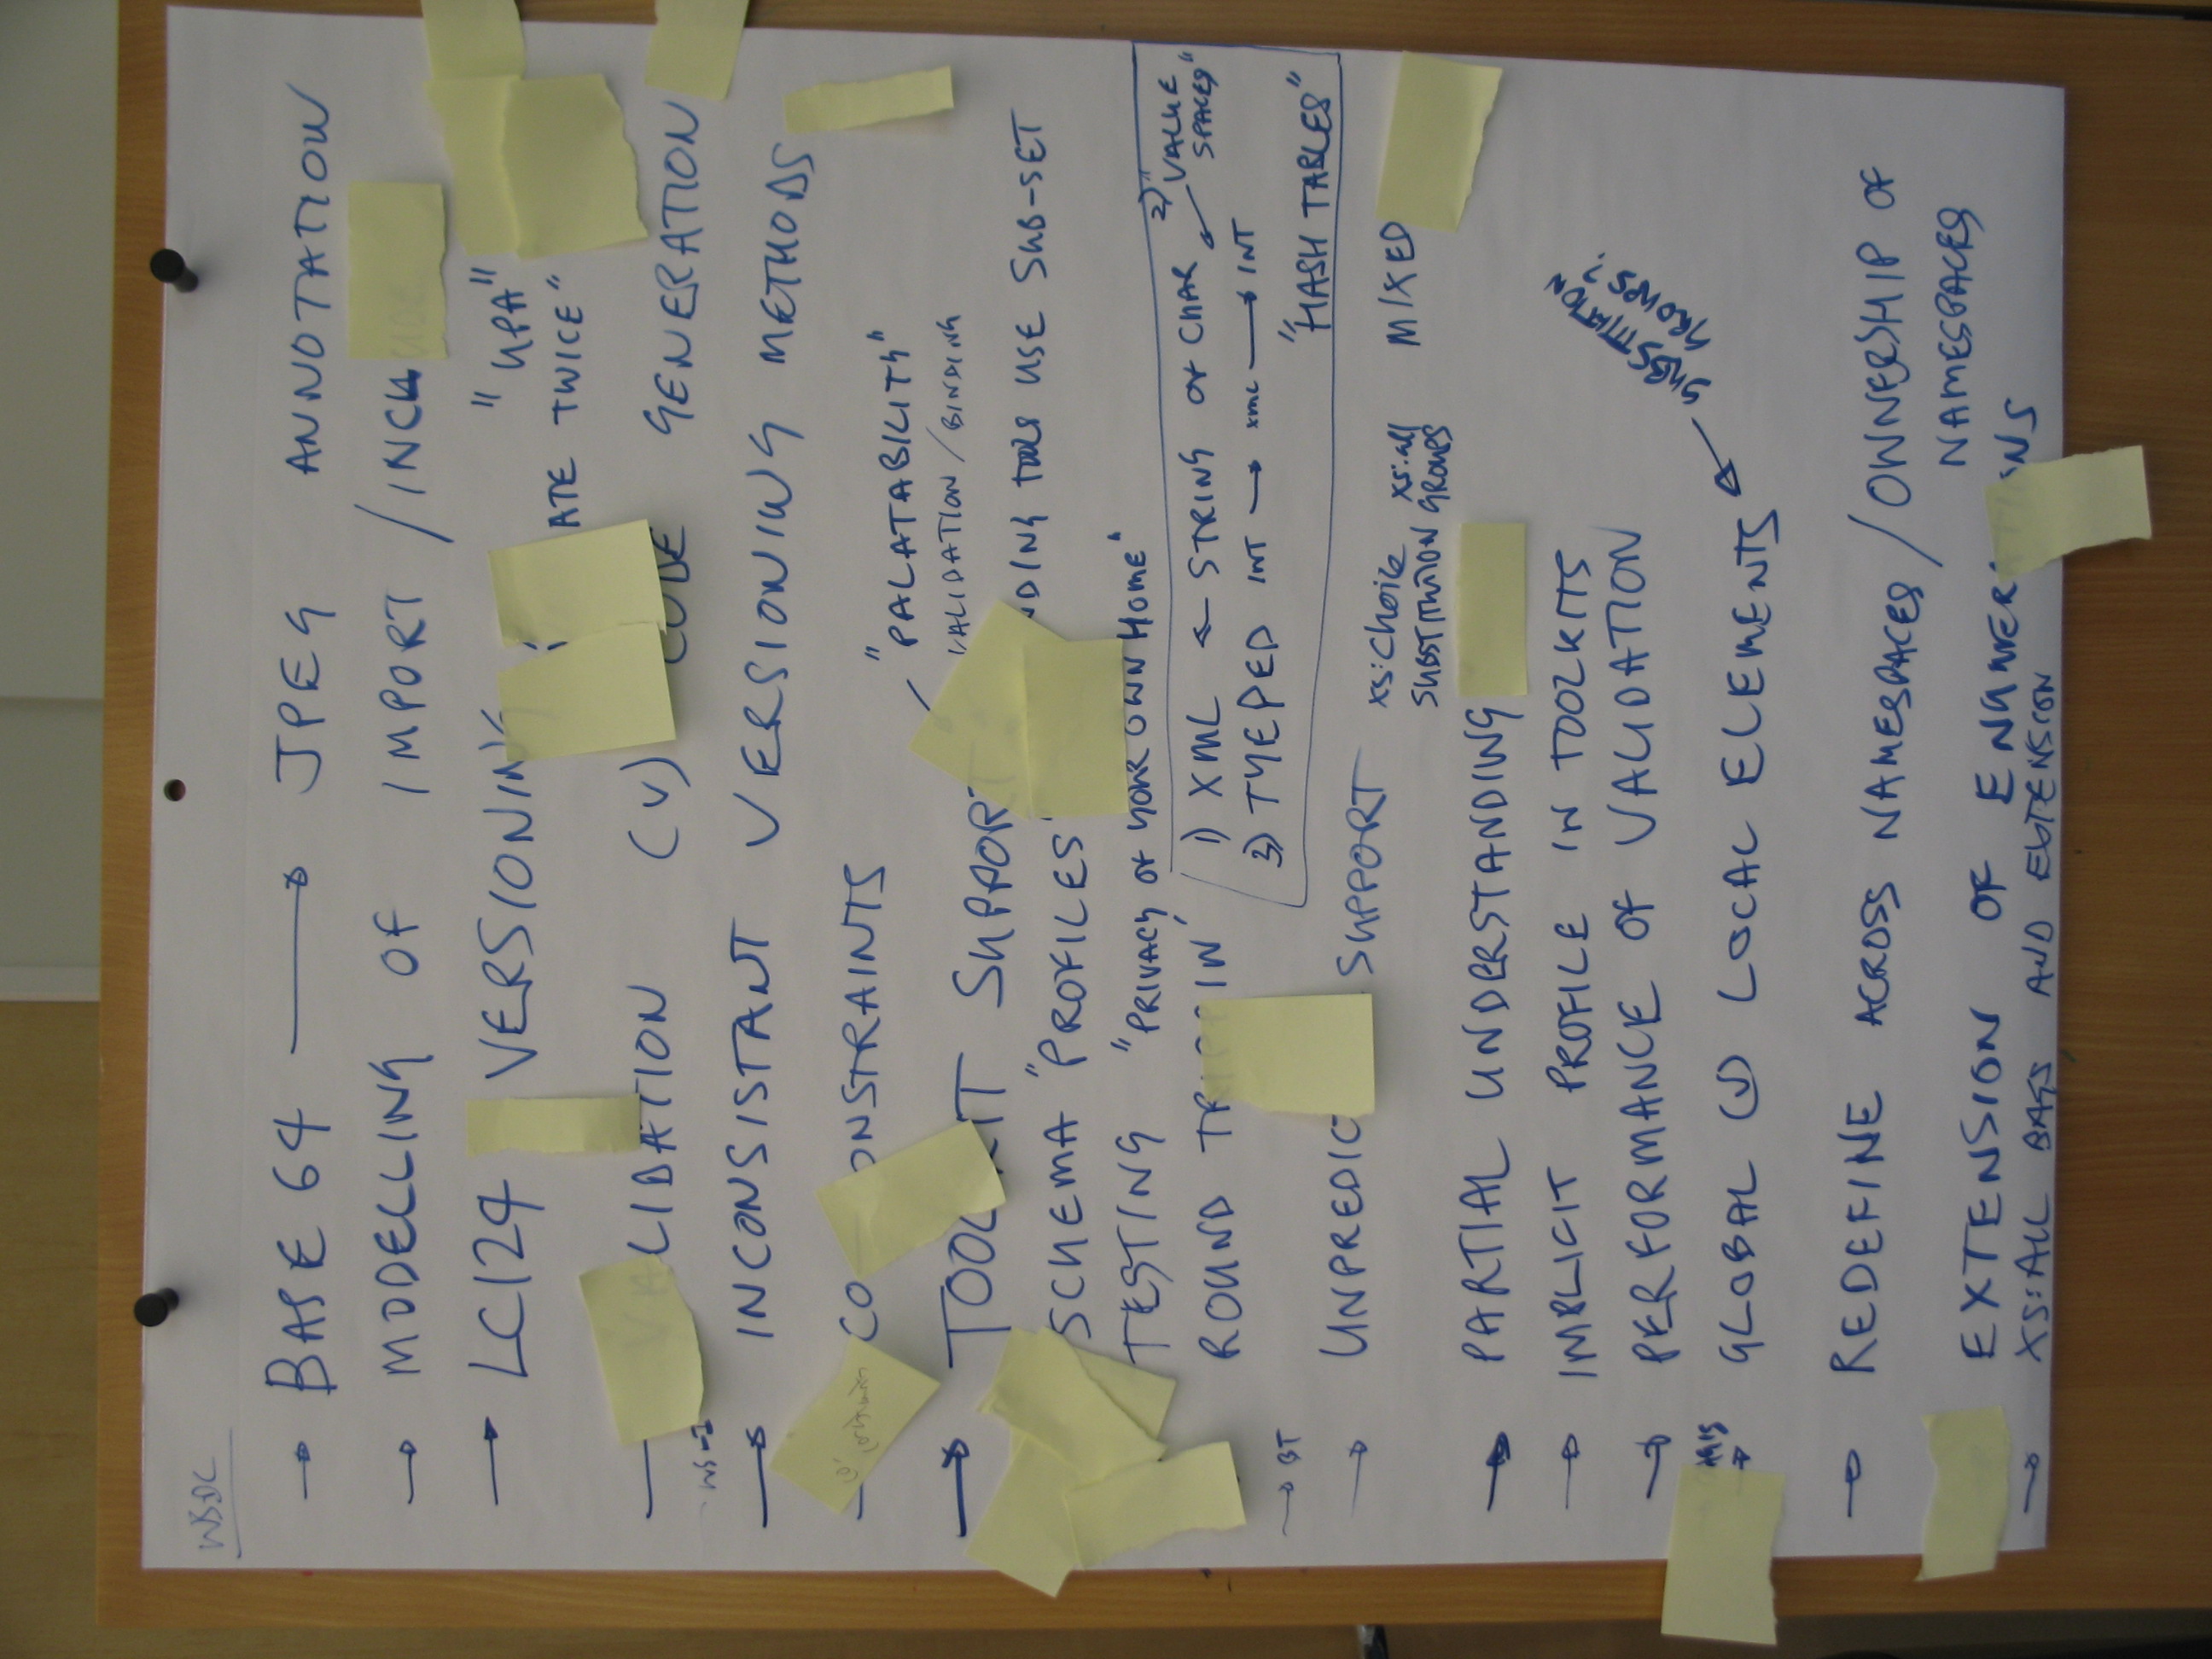 WSDL
→ BASE 64 → JPEG ANNOTATION
→ MODELLING OF IMPORT / INCLU
→ LC124 VERSIONING "UPA"
ATE TWICE"
LIDATION (V) CODE GENERATION
WS-I
→ INCONSISTANT VERSIONING METHODS
CO ONSTRAINTS
"PALATABILITY"
VALIDATION / BINDING
→ TOOLKIT SUPPORT
SCHEMA "PROFILES" NDING TOOLS USE SUB-SET
TESTING "PRIVACY OF YOUR OWN HOME"
ROUND TRIPPIN
1) XML ← STRING OF CHAR ← 2) "VALUE SPACES"
3) TYEPED INT → XML → INT
"HASH TABLES"
→ BT
→ UNPREDIC SUPPORT xs:choice xs:all MIXED
SUBSTITUTION GROUPS
→ PARTIAL UNDERSTANDING
→ IMPLICIT PROFILE IN TOOLKITS
→ PERFORMANCE OF VALIDATION
SUBSTITUTION GROUPS?
GLOBAL (V) LOCAL ELEMENTS
→ REDEFINE ACROSS NAMESPACES / OWNERSHIP OF
NAMESPACES
EXTENSION OF ENUMER NS
→ XS:ALL BAGS AND EXTENSION